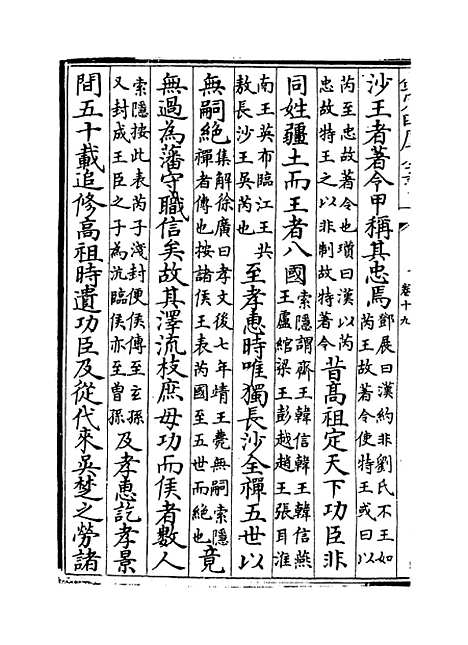 卷十九
沙王者著令甲稱其忠焉鄧展曰漢約非劉氏不王如
芮王故著令使特王或曰以
芮至忠故著令也瓚曰漢以芮
忠故特王之以非制故特著令昔高祖定天下功臣非
同姓疆土而王者八國索隱謂齊王韓信韓王韓信燕
王盧綰梁王彭越趙王張耳淮
南王英布臨江王共
敖長沙王吳芮也至孝惠時唯獨長沙全禪五世以
無嗣絕集解徐廣曰孝文後七年靖王薨無嗣索隱
禪者傳也按諸侯王表芮國至五世而絕也竟
無過為藩守職信矣故其澤流枝庶毋功而侯者數人
索隱按此表芮子淺封便侯傳至玄孫
又封成王臣之子為沅臨侯亦至曾孫及孝惠訖孝景
間五十載追修高祖時遺功臣及從代來吳楚之勞諸